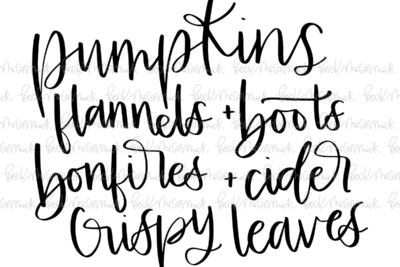 pumpkins
flannels + boots
bonfires + cider
Crispy leaves